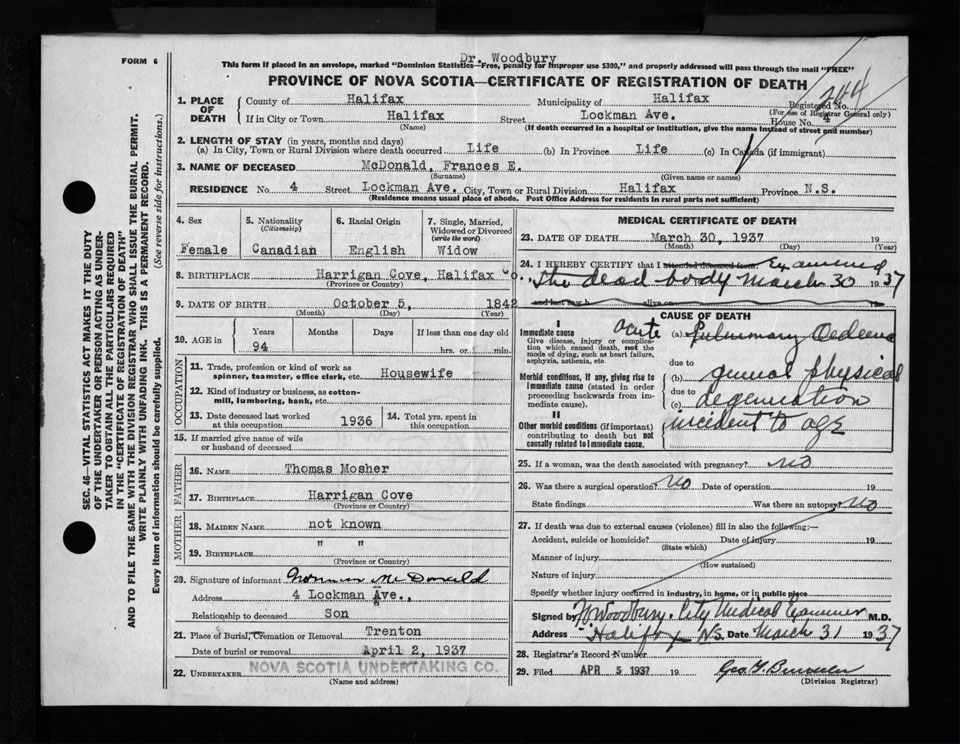 FORM 6
Dr. Woodbury
This form if placed in an envelope, marked "Dominion Statistics—Free, penalty for improper use $300," and properly addressed will pass through the mail "FREE"
PROVINCE OF NOVA SCOTIA—CERTIFICATE OF REGISTRATION OF DEATH
244
SEC. 46—VITAL STATISTICS ACT MAKES IT THE DUTY
OF THE UNDERTAKER OR PERSON ACTING AS UNDER-
TAKER TO OBTAIN ALL THE PARTICULARS REQUIRED
IN THE "CERTIFICATE OF REGISTRATION OF DEATH"
AND TO FILE THE SAME WITH THE DIVISION REGISTRAR WHO SHALL ISSUE THE BURIAL PERMIT.
WRITE PLAINLY WITH UNFADING INK. THIS IS A PERMANENT RECORD.
Every item of information should be carefully supplied. (See reverse side for instructions.)
1. PLACE OF DEATH
County of Halifax Municipality of Halifax Registered No.
(For use of Registrar General only)
If in City or Town Halifax Street Lockman Ave. House No. 4
(Name) (If death occurred in a hospital or institution, give the name instead of street and number)
2. LENGTH OF STAY (in years, months and days)
(a) In City, Town or Rural Division where death occurred Life (b) In Province Life (c) In Canada (if immigrant)
3. NAME OF DECEASED McDonald, Frances E.
(Surname) (Given name or names)
RESIDENCE No. 4 Street Lockman Ave. City, Town or Rural Division Halifax Province N.S.
(Residence means usual place of abode. Post Office Address for residents in rural parts not sufficient)
4. Sex 5. Nationality (Citizenship) 6. Racial Origin 7. Single, Married, Widowed or Divorced (write the word)
Female Canadian English Widow
8. BIRTHPLACE Harrigan Cove, Halifax Co.
(Province or Country)
9. DATE OF BIRTH October 5, 1842
(Month) (Day) (Year)
10. AGE in Years Months Days If less than one day old
94 hrs. or min.
OCCUPATION
11. Trade, profession or kind of work as
spinner, teamster, office clerk, etc. Housewife
12. Kind of industry or business, as cotton-
mill, lumbering, bank, etc.
13. Date deceased last worked
at this occupation 1936
14. Total yrs. spent in
this occupation
15. If married give name of wife
or husband of deceased
FATHER
16. NAME Thomas Mosher
17. BIRTHPLACE Harrigan Cove
(Province or Country)
MOTHER
18. MAIDEN NAME not known
19. BIRTHPLACE " "
(Province or Country)
20. Signature of informant Norman McDonald
Address 4 Lockman Ave.,
Relationship to deceased Son
21. Place of Burial, Cremation or Removal Trenton
Date of burial or removal April 2, 1937
22. UNDERTAKER NOVA SCOTIA UNDERTAKING CO.
(Name and address)
MEDICAL CERTIFICATE OF DEATH
23. DATE OF DEATH March 30, 1937 19
(Month) (Day) (Year)
24. I HEREBY CERTIFY that I attended deceased from Examined
the dead body March 30 1937
and last saw h alive on 19
CAUSE OF DEATH
I
Immediate cause acute (a) Pulmonary Oedema
Give disease, injury or complica-
tion which caused death, not the
mode of dying, such as heart failure,
asphyxia, asthenia, etc.
due to
Morbid conditions, if any, giving rise to
immediate cause (stated in order
proceeding backwards from im-
mediate cause).
(b) general physical
due to
(c) degeneration
II
Other morbid conditions (if important)
contributing to death but not
causally related to immediate cause.
incident to age
25. If a woman, was the death associated with pregnancy? No
26. Was there a surgical operation? No Date of operation 19
State findings Was there an autopsy? No
27. If death was due to external causes (violence) fill in also the following:—
Accident, suicide or homicide? Date of injury 19
(State which)
Manner of injury
(How sustained)
Nature of injury
Specify whether injury occurred in industry, in home, or in public place
Signed by Woodbury, City Medical Examiner M.D.
Address Halifax N.S. Date March 31 1937
28. Registrar's Record Number
29. Filed APR 5 1937 19
(Division Registrar)